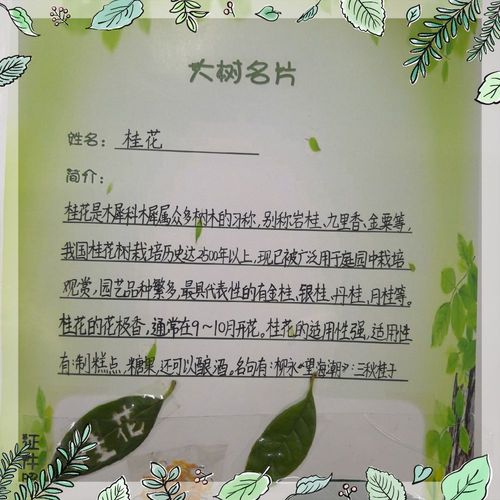 大树名片
姓名： 桂花
简介：
桂花是木犀科木犀属众多树木的习称，别称岩桂、九里香、金粟等，
我国桂花树栽培历史达2500年以上，现已被广泛用于庭园中栽培
观赏，园艺品种繁多，最具代表性的有金桂、银桂、丹桂、月桂等。
桂花的花极香，通常在9～10月开花。桂花的适用性强，适用性
有：制糕点、糖果，还可以酿酒。名句有：柳永《望海潮》：三秋桂子